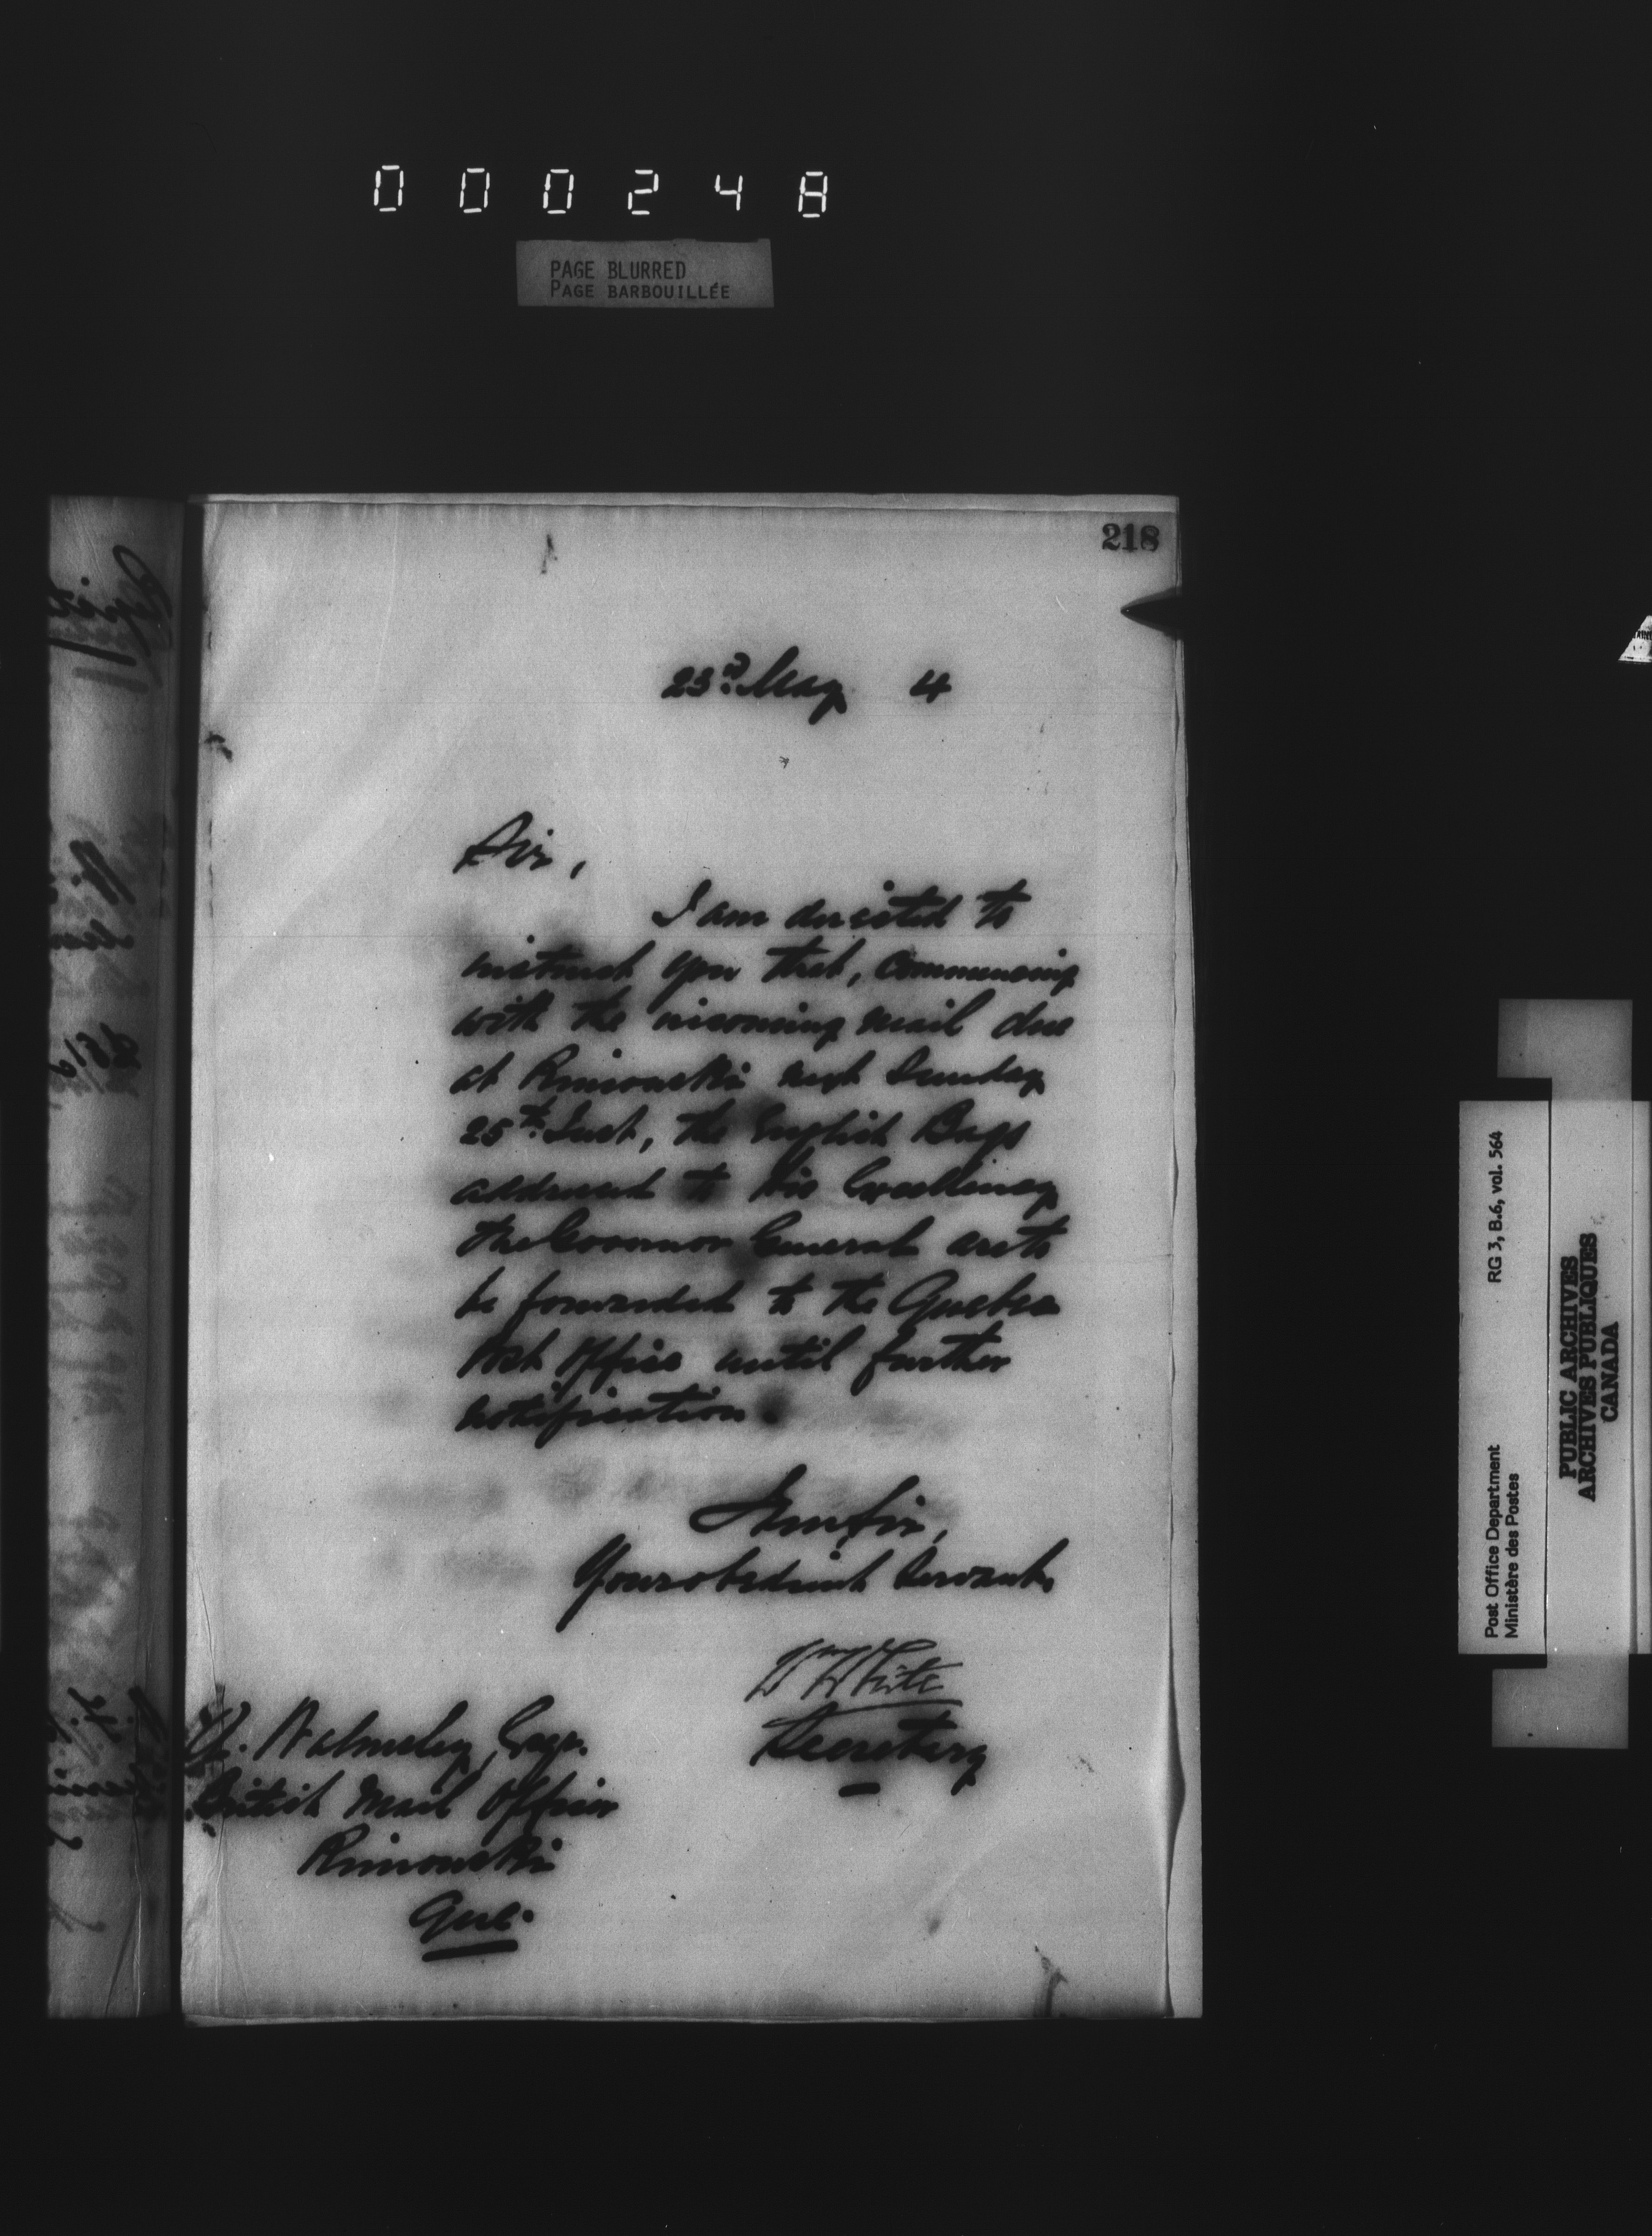 000248
PAGE BLURRED
PAGE BARBOUILLÉE
218
23rd May 4
Sir,
I am directed to
instruct you that, commencing
with the incoming mail due
at Rimouski next Sunday
25th Inst, the English Bags
addressed to His Excellency
the Governor General are to
be forwarded to the Quebec
Post Office until further
notification.
I am Sir,
Your obedient Servant,
Wm White
Secretary
Walmsley, Esqr.
British Mail Officer
Rimouski
Que.
Post Office Department RG 3, B.6, vol. 564
Ministère des Postes
PUBLIC ARCHIVES
ARCHIVES PUBLIQUES
CANADA